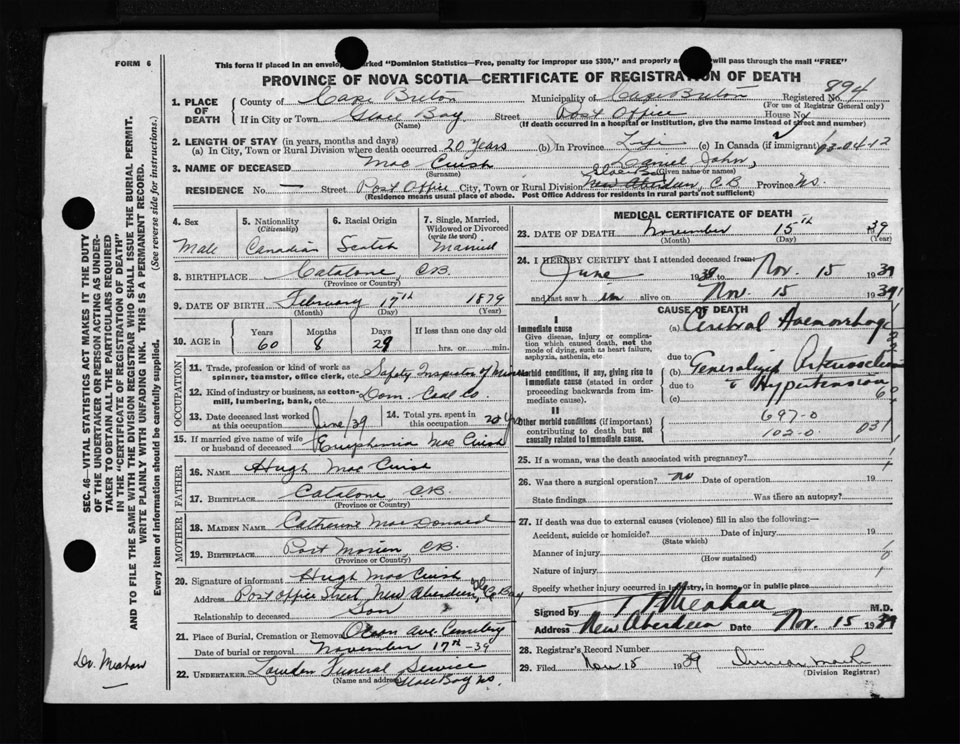 FORM 6
This form if placed in an envelope marked "Dominion Statistics—Free, penalty for improper use $300," and properly will pass through the mail "FREE"
PROVINCE OF NOVA SCOTIA—CERTIFICATE OF REGISTRATION OF DEATH
1. PLACE OF DEATH
County of Cape Breton Municipality of Cape Breton Registered No. 894
(For use of Registrar General only)
If in City or Town Glace Bay Street Post Office House No
(Name) (If death occurred in a hospital or institution, give the name instead of street and number)
2. LENGTH OF STAY (in years, months and days)
(a) In City, Town or Rural Division where death occurred 20 years (b) In Province Life (c) In Canada (if immigrant) 03-04-12
3. NAME OF DECEASED Mac Cuish Daniel John,
(Surname) (Given name or names)
Glace Bay
RESIDENCE No. — Street Post Office City, Town or Rural Division New Aberdeen, C.B. Province N.S.
(Residence means usual place of abode. Post Office Address for Residents in rural parts not sufficient)
4. Sex
Male
5. Nationality
(Citizenship)
Canadian
6. Racial Origin
Scotch
7. Single, Married, Widowed or Divorced
(write the word)
Married
8. BIRTHPLACE Catalone, C.B.
(Province or Country)
9. DATE OF BIRTH February 17th 1879
(Month) (Day) (Year)
10. AGE in
Years Months Days If less than one day old
60 8 29 hrs. or min.
OCCUPATION
11. Trade, profession or kind of work as spinner, teamster, office clerk, etc Safety Inspector of Mines
12. Kind of industry or business, as cotton mill, lumbering, bank, etc. Dom. Coal Co.
13. Date deceased last worked at this occupation June/39
14. Total yrs. spent in this occupation 20 yrs
15. If married give name of wife or husband of deceased Euphemia Mac Cuish
FATHER
16. NAME Hugh Mac Cuish
17. BIRTHPLACE Catalone, C.B.
(Province or Country)
MOTHER
18. MAIDEN NAME Catherine MacDonald
19. BIRTHPLACE Port Morien, C.B.
(Province or Country)
20. Signature of informant Hugh Mac Cuish
Address Post Office Street, New Aberdeen, Gl. Bay
Relationship to deceased Son
21. Place of Burial, Cremation or Removal Ocean Ave. Cemetery
Date of burial or removal November 17th -39
22. UNDERTAKER Lowden Funeral Service
(Name and address) Glace Bay N.S.
MEDICAL CERTIFICATE OF DEATH
23. DATE OF DEATH November 15th 1939
(Month) (Day) (Year)
24. I HEREBY CERTIFY that I attended deceased from:
June 1939 to Nov. 15 1939
and last saw h im alive on Nov. 15 1939
CAUSE OF DEATH
I
Immediate cause
Give disease, injury or complication which caused death, not the mode of dying, such as heart failure, asphyxia, asthenia, etc
(a) Cerebral Haemorrhage
due to
Morbid conditions, if any, giving rise to immediate cause (stated in order proceeding backwards from immediate cause).
(b) Generalized Arteriosclerosis
due to & Hypertension
(c)
II
Other morbid conditions (if important) contributing to death but not causally related to immediate cause.
697-0
102-0 031
25. If a woman, was the death associated with pregnancy?
26. Was there a surgical operation? no Date of operation 19
State findings Was there an autopsy?
27. If death was due to external causes (violence) fill in also the following:—
Accident, suicide or homicide? Date of injury 19
(State which)
Manner of injury
(How sustained)
Nature of injury
Specify whether injury occurred in industry, in home, or in public place
Signed by Meahan M.D.
Address New Aberdeen Date Nov. 15 1939
28. Registrar's Record Number
29. Filed Nov 15 1939
(Division Registrar)
SEC. 46—VITAL STATISTICS ACT MAKES IT THE DUTY
OF THE UNDERTAKER OR PERSON ACTING AS UNDER-
TAKER TO OBTAIN ALL THE PARTICULARS REQUIRED
IN THE "CERTIFICATE OF REGISTRATION OF DEATH"
AND TO FILE THE SAME WITH THE DIVISION REGISTRAR WHO SHALL ISSUE THE BURIAL PERMIT.
WRITE PLAINLY WITH UNFADING INK. THIS IS A PERMANENT RECORD.
Every item of information should be carefully supplied. (See reverse side for instructions.)
Dr. Meahan